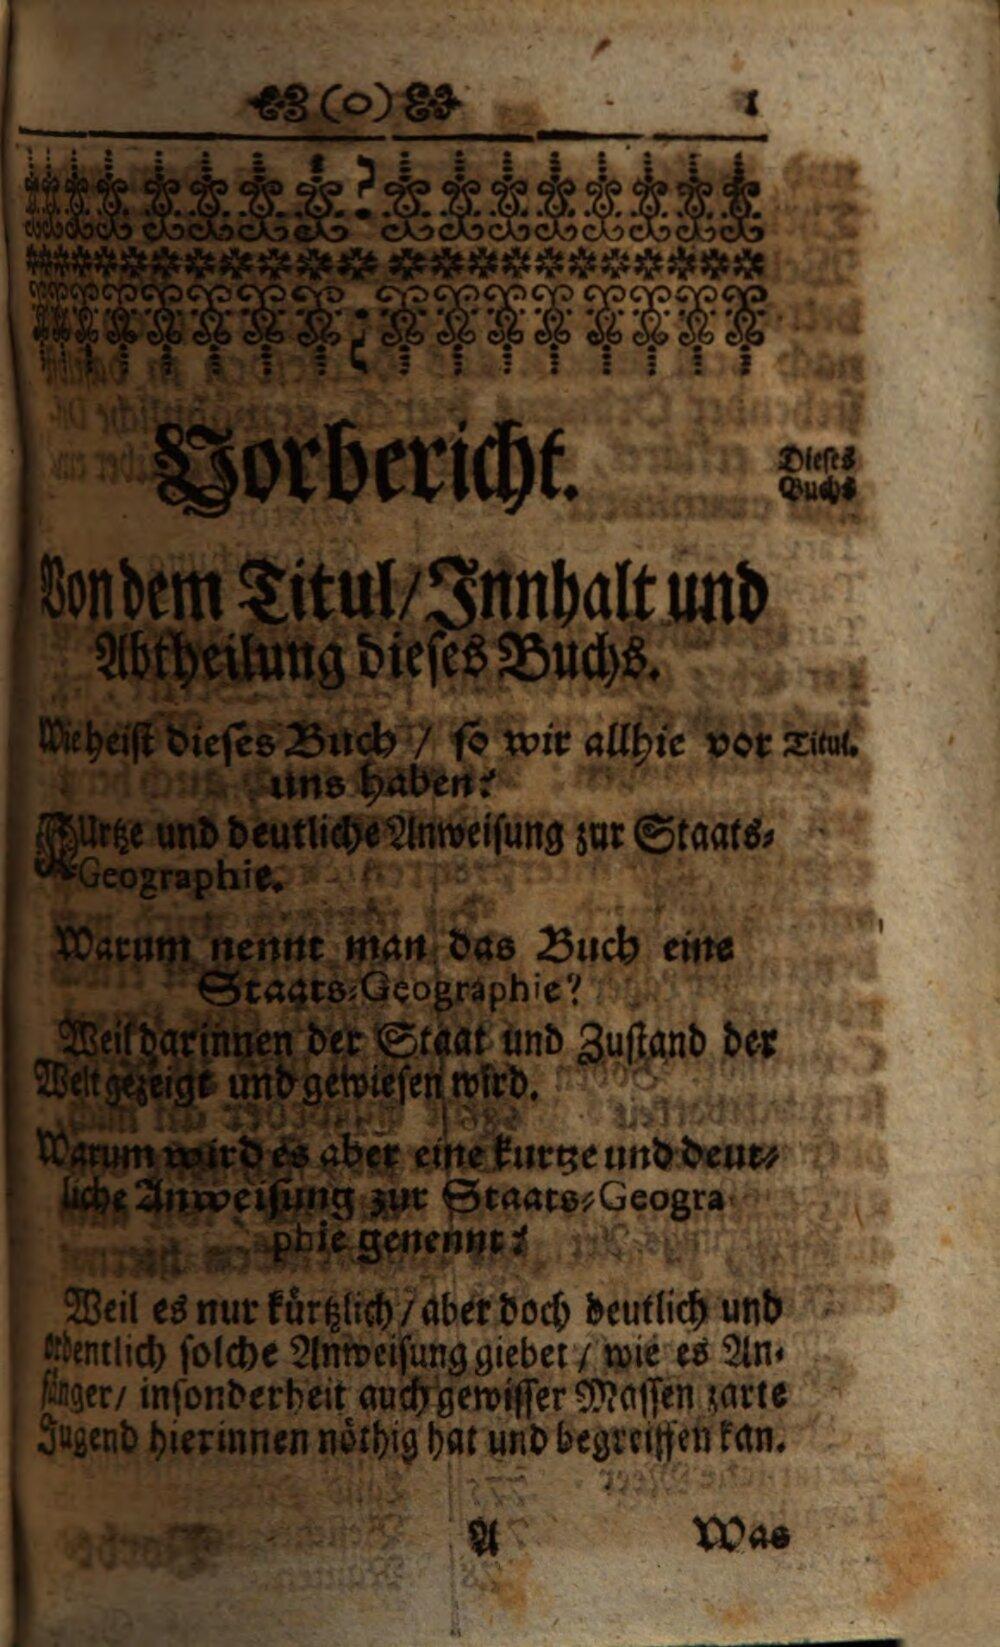 (o) 1
Vorbericht.
Dieses
Buchs
Von dem Titul/ Innhalt und
Abtheilung dieses Buchs.
Wie heist dieses Buch / so wir allhie vor
Titul.
uns haben?
KUrtze und deutliche Anweisung zur Staats-
Geographie.
Warum nennt man das Buch eine
Staats-Geographie?
Weil darinnen der Staat und Zustand der
Welt gezeigt und gewiesen wird.
Warum wird es aber eine kurtze und deut-
liche Anweisung zur Staats-Geogra
phie genennt?
Weil es nur kürtzlich / aber doch deutlich und
ordentlich solche Anweisung giebet / wie es An-
fänger/ insonderheit auch gewisser Massen zarte
Jugend hierinnen nöthig hat und begreiffen kan.
A Was